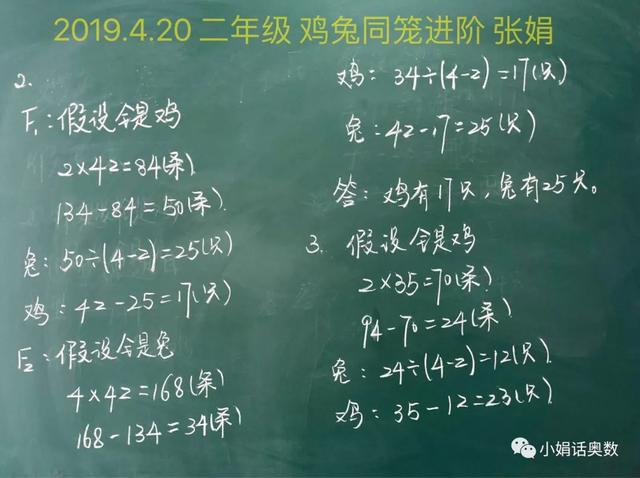 2019.4.20 二年级 鸡兔同笼进阶 张娟
2.
F₁:假设全是鸡
2×42=84(条)
134-84=50(条)
兔:50÷(4-2)=25(只)
鸡:42-25=17(只)
F₂:假设全是兔
4×42=168(条)
168-134=34(条)
鸡:34÷(4-2)=17(只)
兔:42-17=25(只)
答:鸡有17只,兔有25只。
3. 假设全是鸡
2×35=70(条)
94-70=24(条)
兔:24÷(4-2)=12(只)
鸡:35-12=23(只)
小娟话奥数